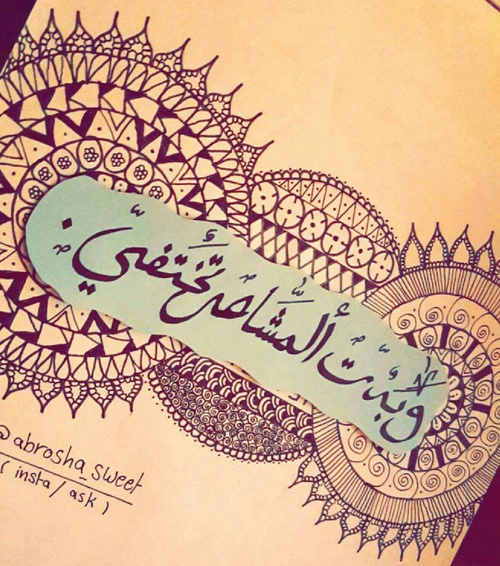 وبدت المشاعر تختفي.
@abrosha_sweet
( insta / ask )